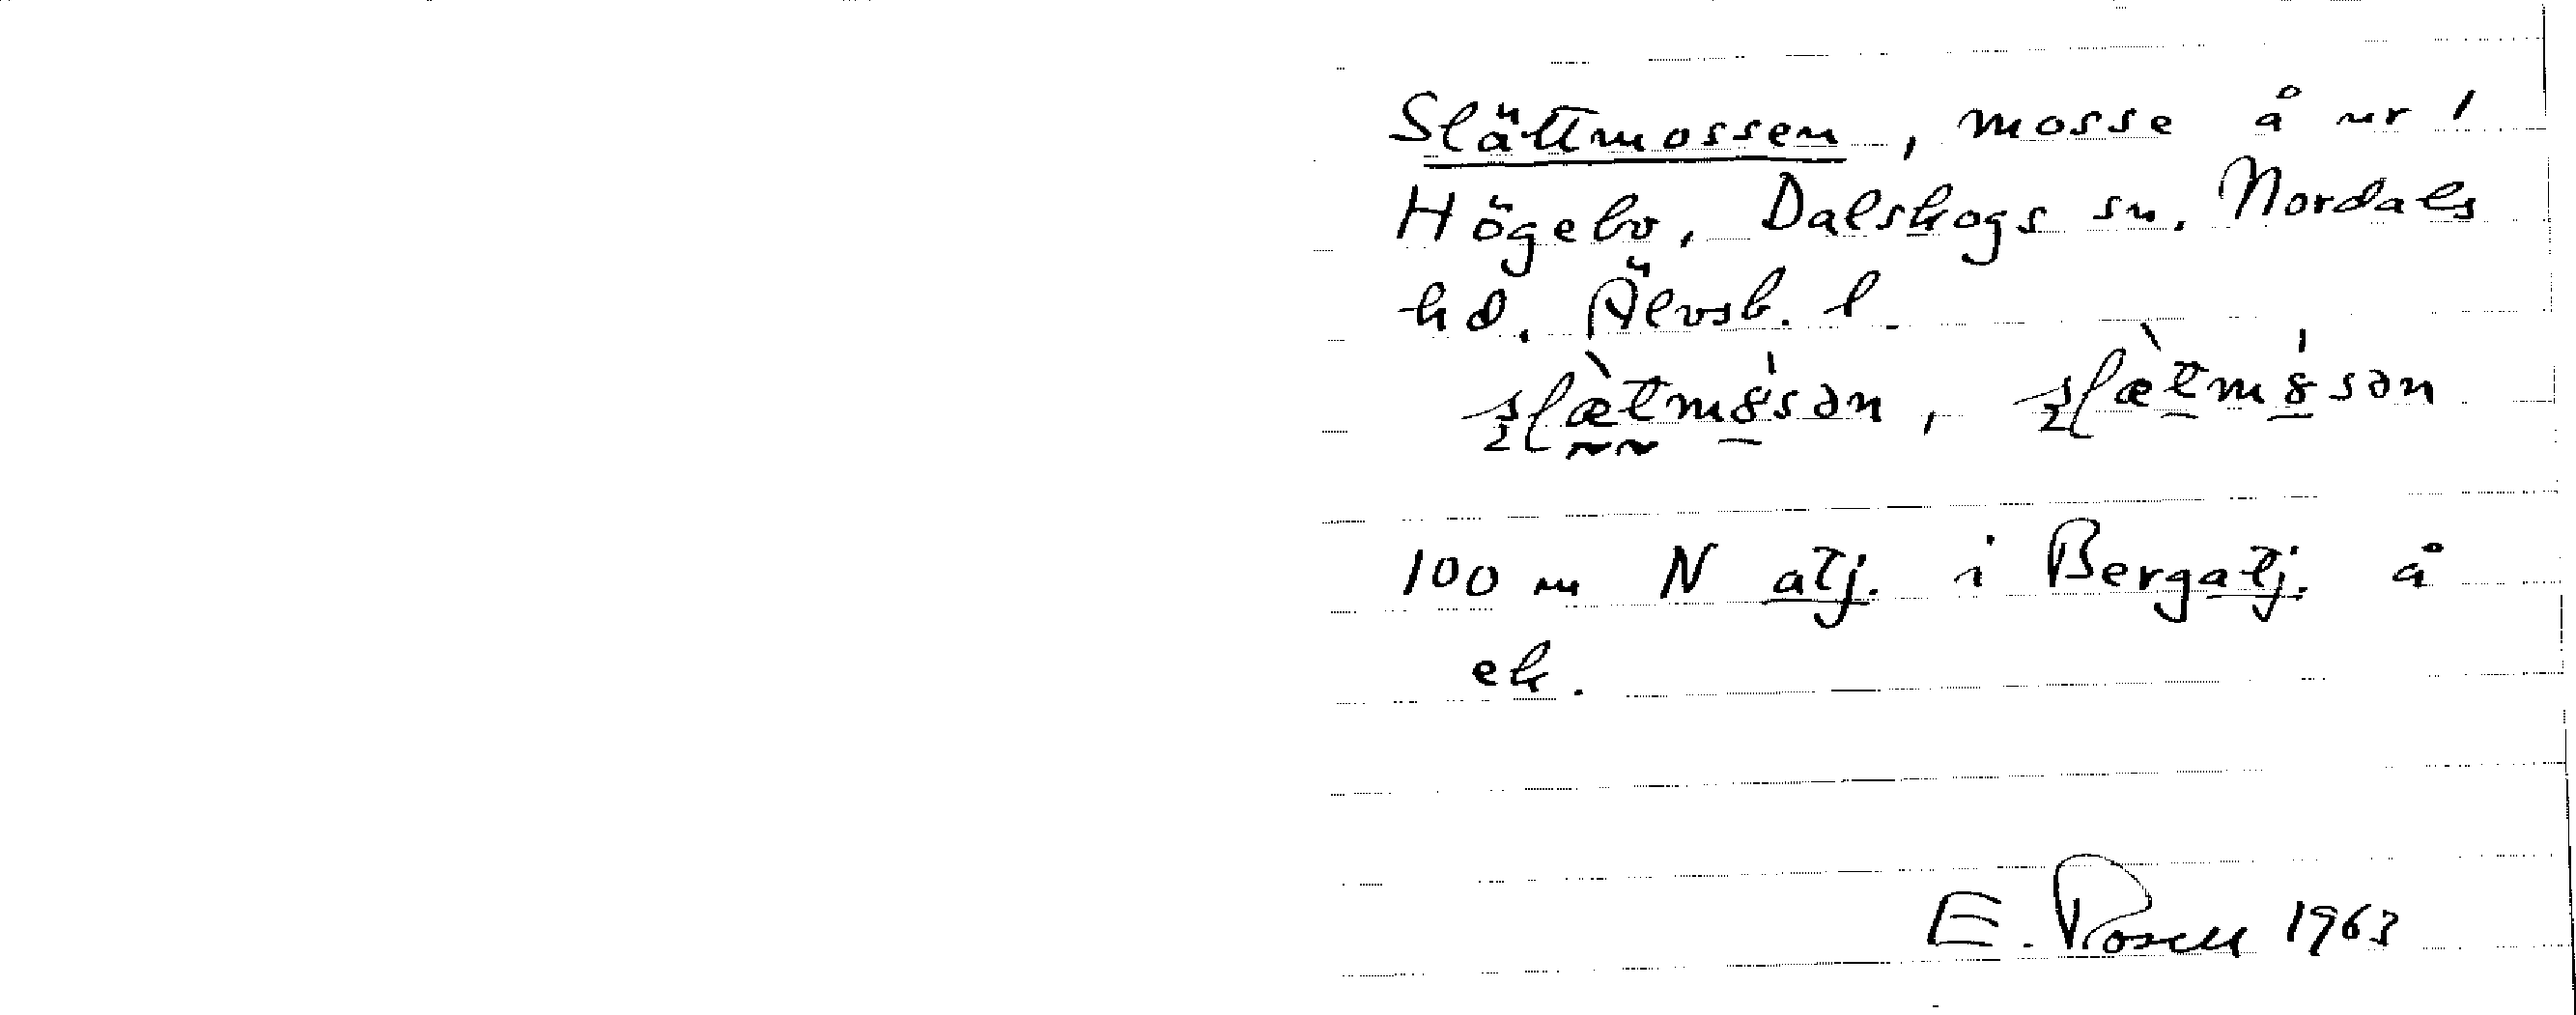 Slättmossen, mosse å nr 1
Högebo, Dalskogs sn. Nordals
hd. Älvsb. l.
slæ̀tmȣ́sən, slæ̀tmȣ́sən
100 m N atj. i Bergatj. å
ek.
E. Rosell 1963